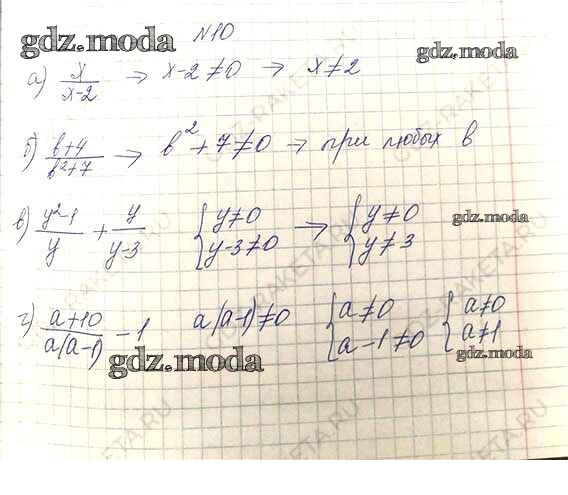 gdz.moda
№10
gdz.moda
а) x/(x-2) → x-2≠0 → x≠2
б) (b+4)/(b²+7) → b²+7≠0 → при любых b
в) (y²-1)/y + y/(y-3) { y≠0 y-3≠0 → { y≠0 y≠3
gdz.moda
г) (a+10)/(a(a-1)) - 1 a(a-1)≠0 { a≠0 a-1≠0 { a≠0 a≠1
gdz.moda
gdz.moda